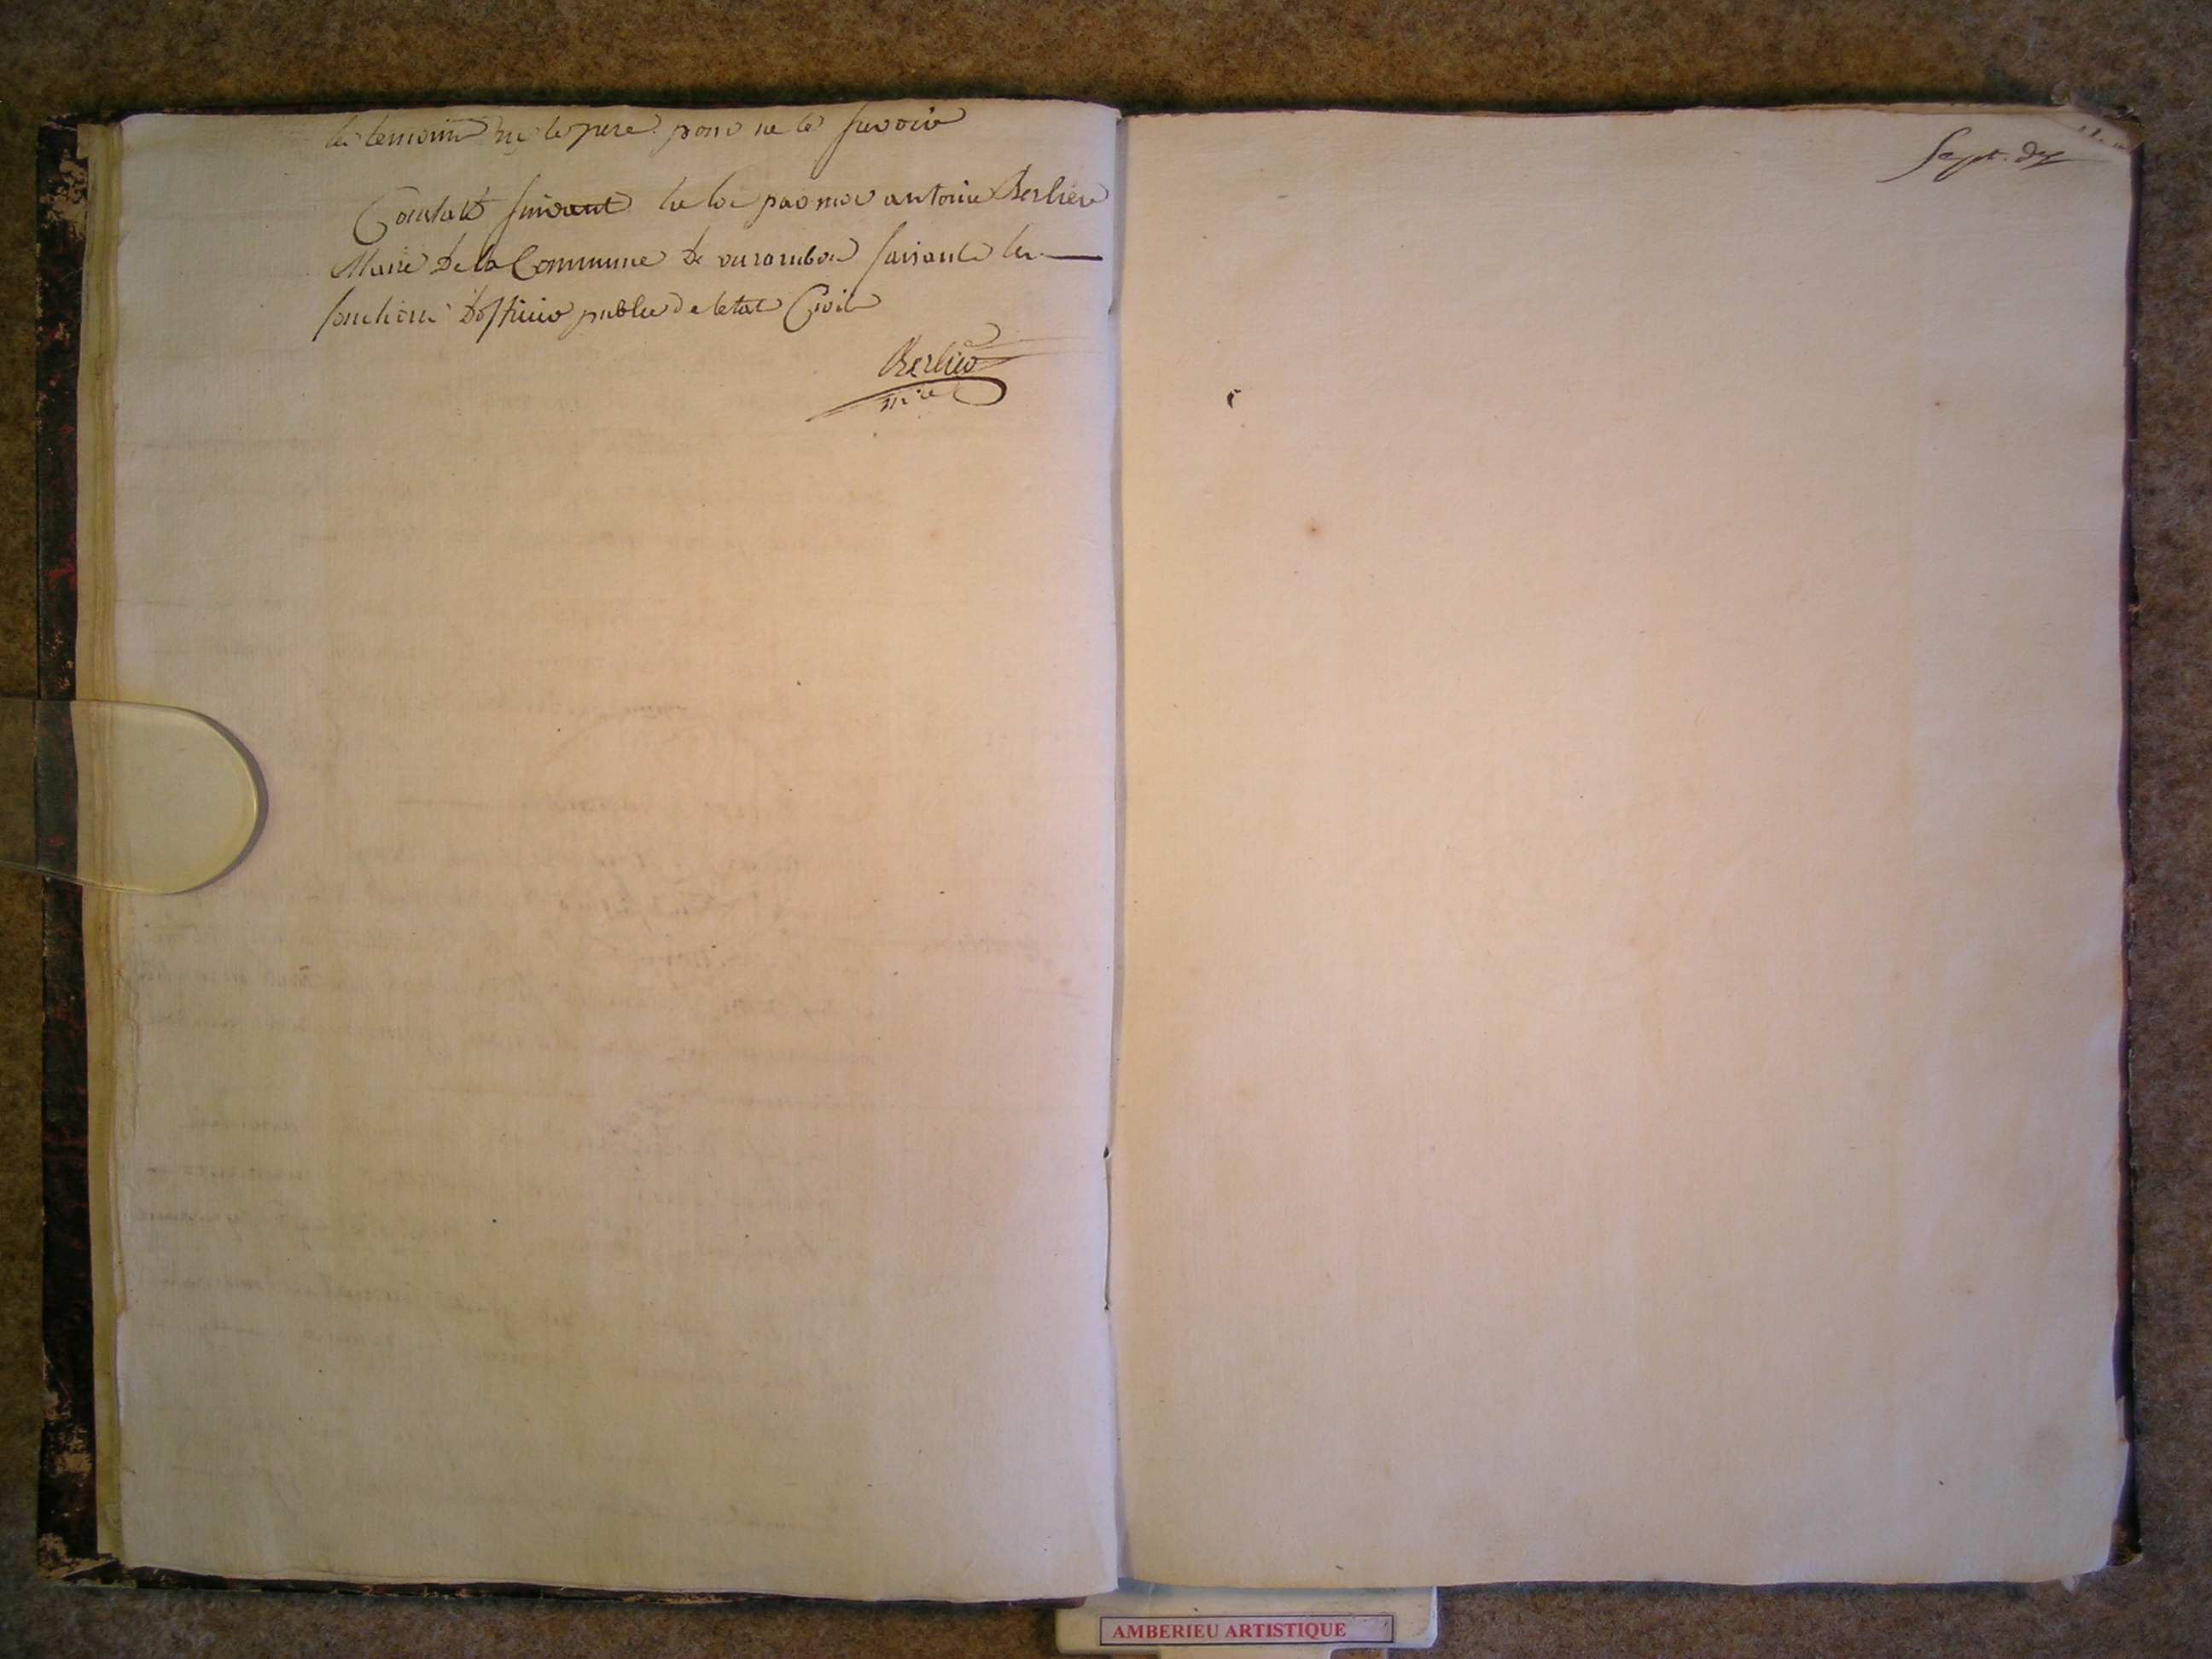 les temoins ni le pere pour ne le savoir
Constaté suivant la loi par moi antoine Berlier
Maire De la Commune De varambon faisant les
fonctions D'officier public de letat Civil
Berlier
mire
Sept.
AMBERIEU ARTISTIQUE